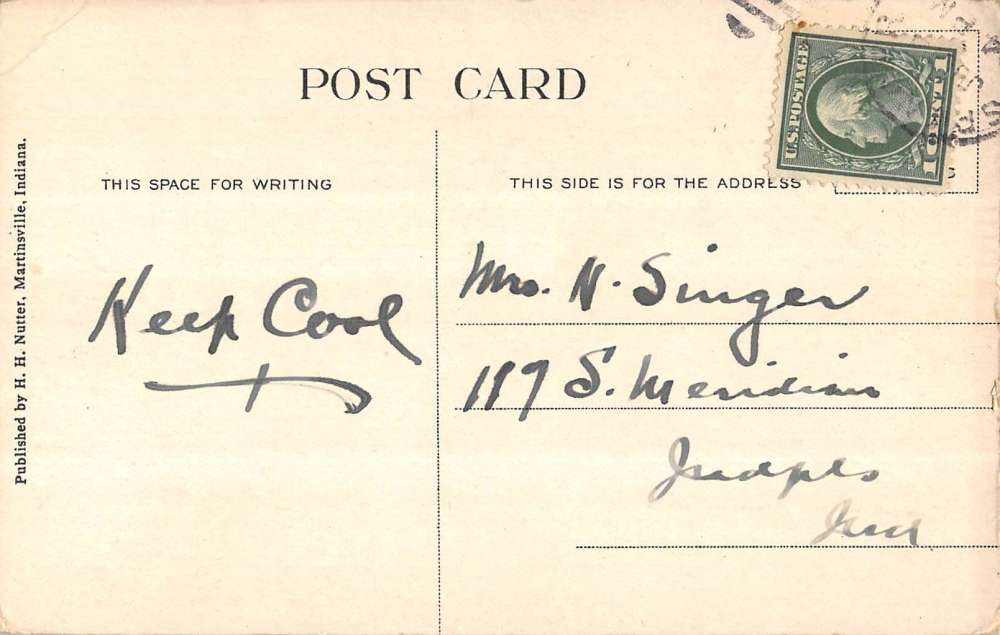 POST CARD
THIS SPACE FOR WRITING
THIS SIDE IS FOR THE ADDRESS
U.S. POSTAGE
Published by H. H. Nutter, Martinsville, Indiana.
Keep Cool
Mrs. N. Singer
117 S. Meridian
Indpls
Ind